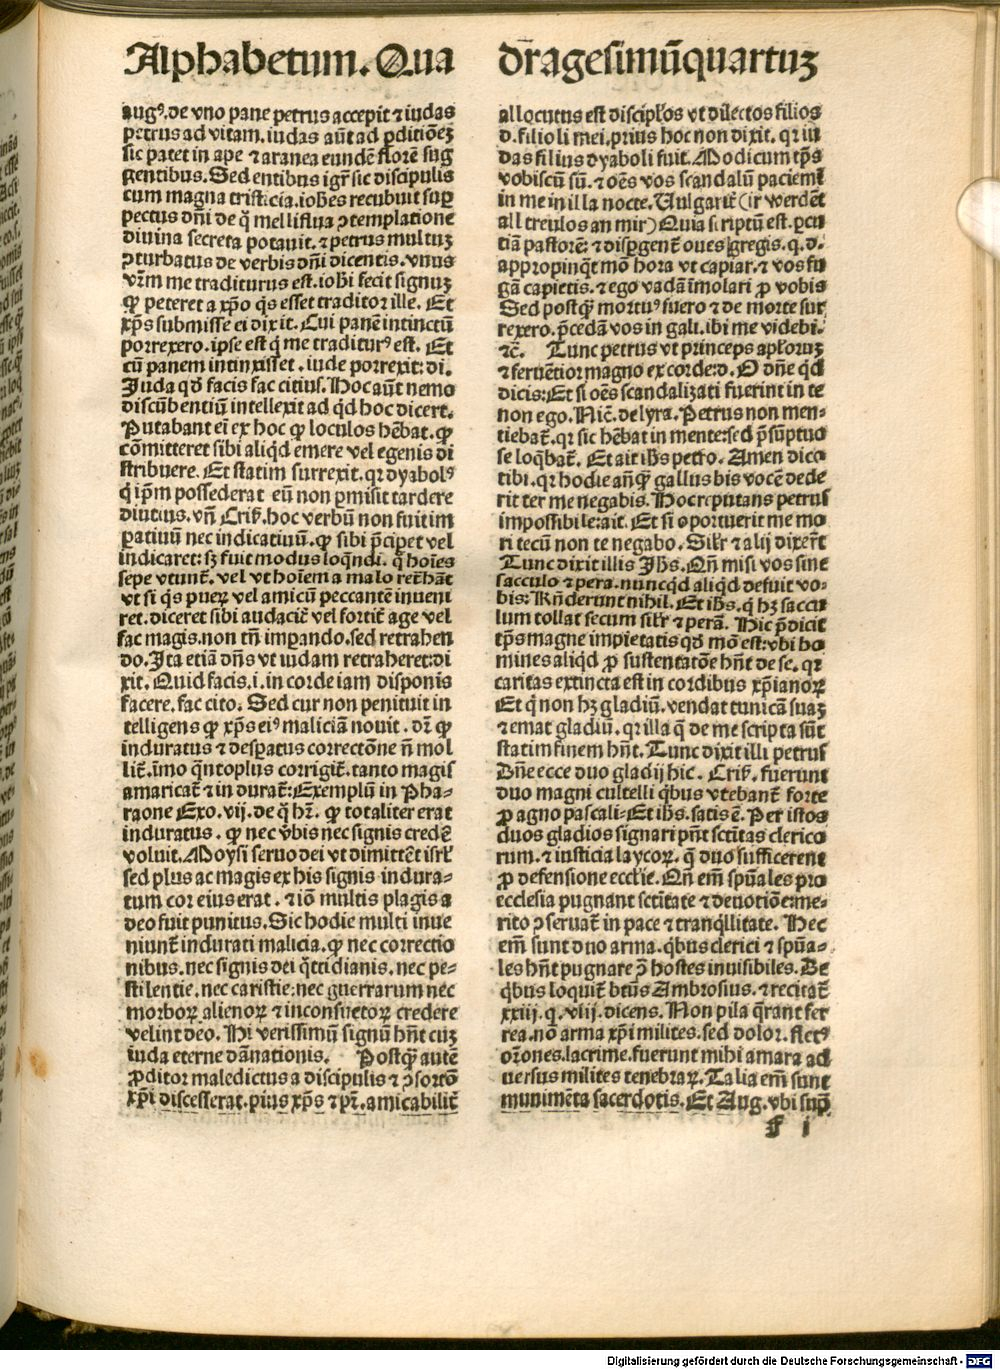 Alphabetum. Qua
aug⁹. de vno pane petrus accepit ⁊ iudas
petrus ad vitam. iudas aūt ad ꝑditiōeꝫ
sic patet in ape ⁊ aranea eundē florē sug
gentibus. Sed entibus igr̄ sic discipulis
cum magna tristicia. iohēs recubuit suꝑ
pectus dn̄i de q̄ melliflua ꝯtemplatione
diuina secreta potauit. ⁊ petrus multuꝫ
ꝯturbatus de verbis dn̄i dicentis. vnus
vr̄m me traditurus est. iohi fecit signuꝫ
ꝙ peteret a xp̄o q̄s esset traditor ille. Et
xp̄s submisse ei dixit. Cui panē intinctū
porrexero. ipse est q̄ me traditur⁹ est. Et
cū panem intinxisset. iude porrexit: di.
Iuda qđ facis fac citius. Hoc aūt nemo
discūbentiū intellexit ad qđ hoc dicert.
Putabant ei ex hoc ꝙ loculos hēbat. ꝙ
cōmitteret sibi aliqđ emere vel egenis di
stribuere. Et statim surrexit. qꝛ dyabol⁹
q̄ ip̄m possederat eū non ꝑmisit tardere
diutius. vn̄ Cris̄. hoc verbū non fuit im
ꝑatiuū nec indicatiuū. ꝙ sibi p̄cipet vel
indicaret: sꝫ fuit modus loqn̄di. q̄ hoīes
sepe vtunt̄. vel vt hoīem a malo retr̄hāt
vt si q̄s pueꝝ vel amicū peccantē inueni
ret. diceret sibi audacit̄ vel fortit̄ age vel
fac magis. non tn̄ imꝑando. sed retrahen
do. Ita etiā dn̄s vt iudam retraheret: di
xit. Quid facis. i. in corde iam disponis
facere. fac cito. Sed cur non penituit in
telligens ꝙ xp̄s ei⁹ maliciā nouit. dr̄ ꝙ
induratus ⁊ desꝑatus correctōne n̄ mol
lit̄. īmo q̄ntoplus corrigit̄. tanto magis
amaricat̄ ⁊ in durat̄: Exemplū in Pha-
raone Exo. vij. de q̄ hr̄. ꝙ totaliter erat
induratus. ꝙ nec v̄bis nec signis credē
voluit. Moysi seruo dei vt dimittēt isrl̄
sed plus ac magis ex his signis indura-
tum cor eius erat. ⁊ iō multis plagis a
deo fuit punitus. Sic hodie multi inue
niunt̄ indurati malicia. ꝙ nec correctio
nibus. nec signis dei q̄ttidianis. nec pe-
stilentie. nec caristie: nec guerrarum nec
morboꝝ alienoꝝ ⁊ inconsuetoꝝ credere
velint deo. Hi verissimū signū hn̄t cuꝫ
iuda eterne dānationis. Postꝙ̄ autē
ꝓditor maledictus a discipulis ⁊ ꝯsortō
xp̄i discesserat. pius xp̄s ⁊ pr̄. amicabilit̄
dr̄agesimūquartuꝫ
allocutus est discipl̄os vt dilectos filios
d. filioli mei. prius hoc non dixit. qꝛ iu
das filius dyaboli fuit. Modicum tp̄s
vobiscū sū. ⁊ oēs vos scandalū paciemī
in me in illa nocte. Vulgarit̄ (ir werdēt
all treulos an mir) Quia scriptū est. ꝑcu
tiā pastorē: ⁊ disꝑgent̄ oues gregis. q. d.
appropinq̄t mō hora vt capiar. ⁊ vos fu
gā capietis. ⁊ ego vadā īmolari ꝓ vobis
Sed postꝙ̄ mortu⁹ fuero ⁊ de morte sur
rexero. p̄cedā vos in gali. ibi me videbi.
⁊c̄. Tunc petrus vt princeps apl̄oruꝫ
⁊ feruētior magno ex corde: d. O dn̄e qđ
dicis: Et si oēs scandalizati fuerint in te
non ego. Nic̄. de lyra. Petrus non men-
tiebat̄. qꝛ sic hēbat in mente: sed p̄sūptuo
se loq̄bat̄. Et ait ih̄s petro. Amen dico
tibi. qꝛ hodie anq̄ꝙ̄ gallus bis vocē dede
rit ter me negabis. Hoc reputans petrus
impossibile: ait. Et si oportuerit me mo
ri tecū non te negabo. Silr̄ ⁊ alij dixer̄t
Tunc dixit illis Ih̄s. Qn̄ misi vos sine
sacculo ⁊ pera. nuncqđ aliqđ defuit vo-
bis: Rn̄derunt nihil. Et ih̄s. q̄ hꝫ saccu
lum tollat secum silr̄ ⁊ perā. Hic p̄dicit
tp̄s magne impietatis qđ mō est: vbi ho
mines aliqđ ꝓ sustentatōe hn̄t de se. qꝛ
caritas extincta est in cordibus xp̄ianoꝝ
Et q̄ non hꝫ gladiū. vendat tunicā suaꝫ
⁊ emat gladiū. qꝛ illa q̄ de me scripta sūt
statim finem hn̄t. Tunc dixit illi petrus
Dn̄e ecce duo gladij hic. Cris̄. fuerunt
duo magni cultelli q̄bus vtebant̄ forte
ꝓ agno pascali- Et ih̄s. satis ē. Per istos
duos gladios signari pn̄t sctītas clerico
rum. ⁊ iusticia laycoꝝ. q̄ duo sufficerent
ꝓ defensione eccl̄ie. Qn̄ em̄ spūales pro
ecclesia pugnant sctītate ⁊ deuotiōe: me-
rito ꝯseruat̄ in pace ⁊ tranq̄llitate. Hec
em̄ sunt duo arma. q̄bus clerici ⁊ spūa-
les hn̄t pugnare ꝯ̄ hostes inuisibiles. De
q̄bus loquit̄ btūs Ambrosius. ⁊ recitat̄
xxiij. q. vlij. dicens. Non pila q̄rant fer
rea. nō arma xp̄i milites. sed dolor. flet⁹
or̄ones. lacrime. fuerunt mihi amara ad
uersus milites tenebraꝝ. Talia em̄ sunt
munimēta sacerdotis. Et Aug. vbi suꝑ
f i
Digitalisierung gefördert durch die Deutsche Forschungsgemeinschaft - DFG